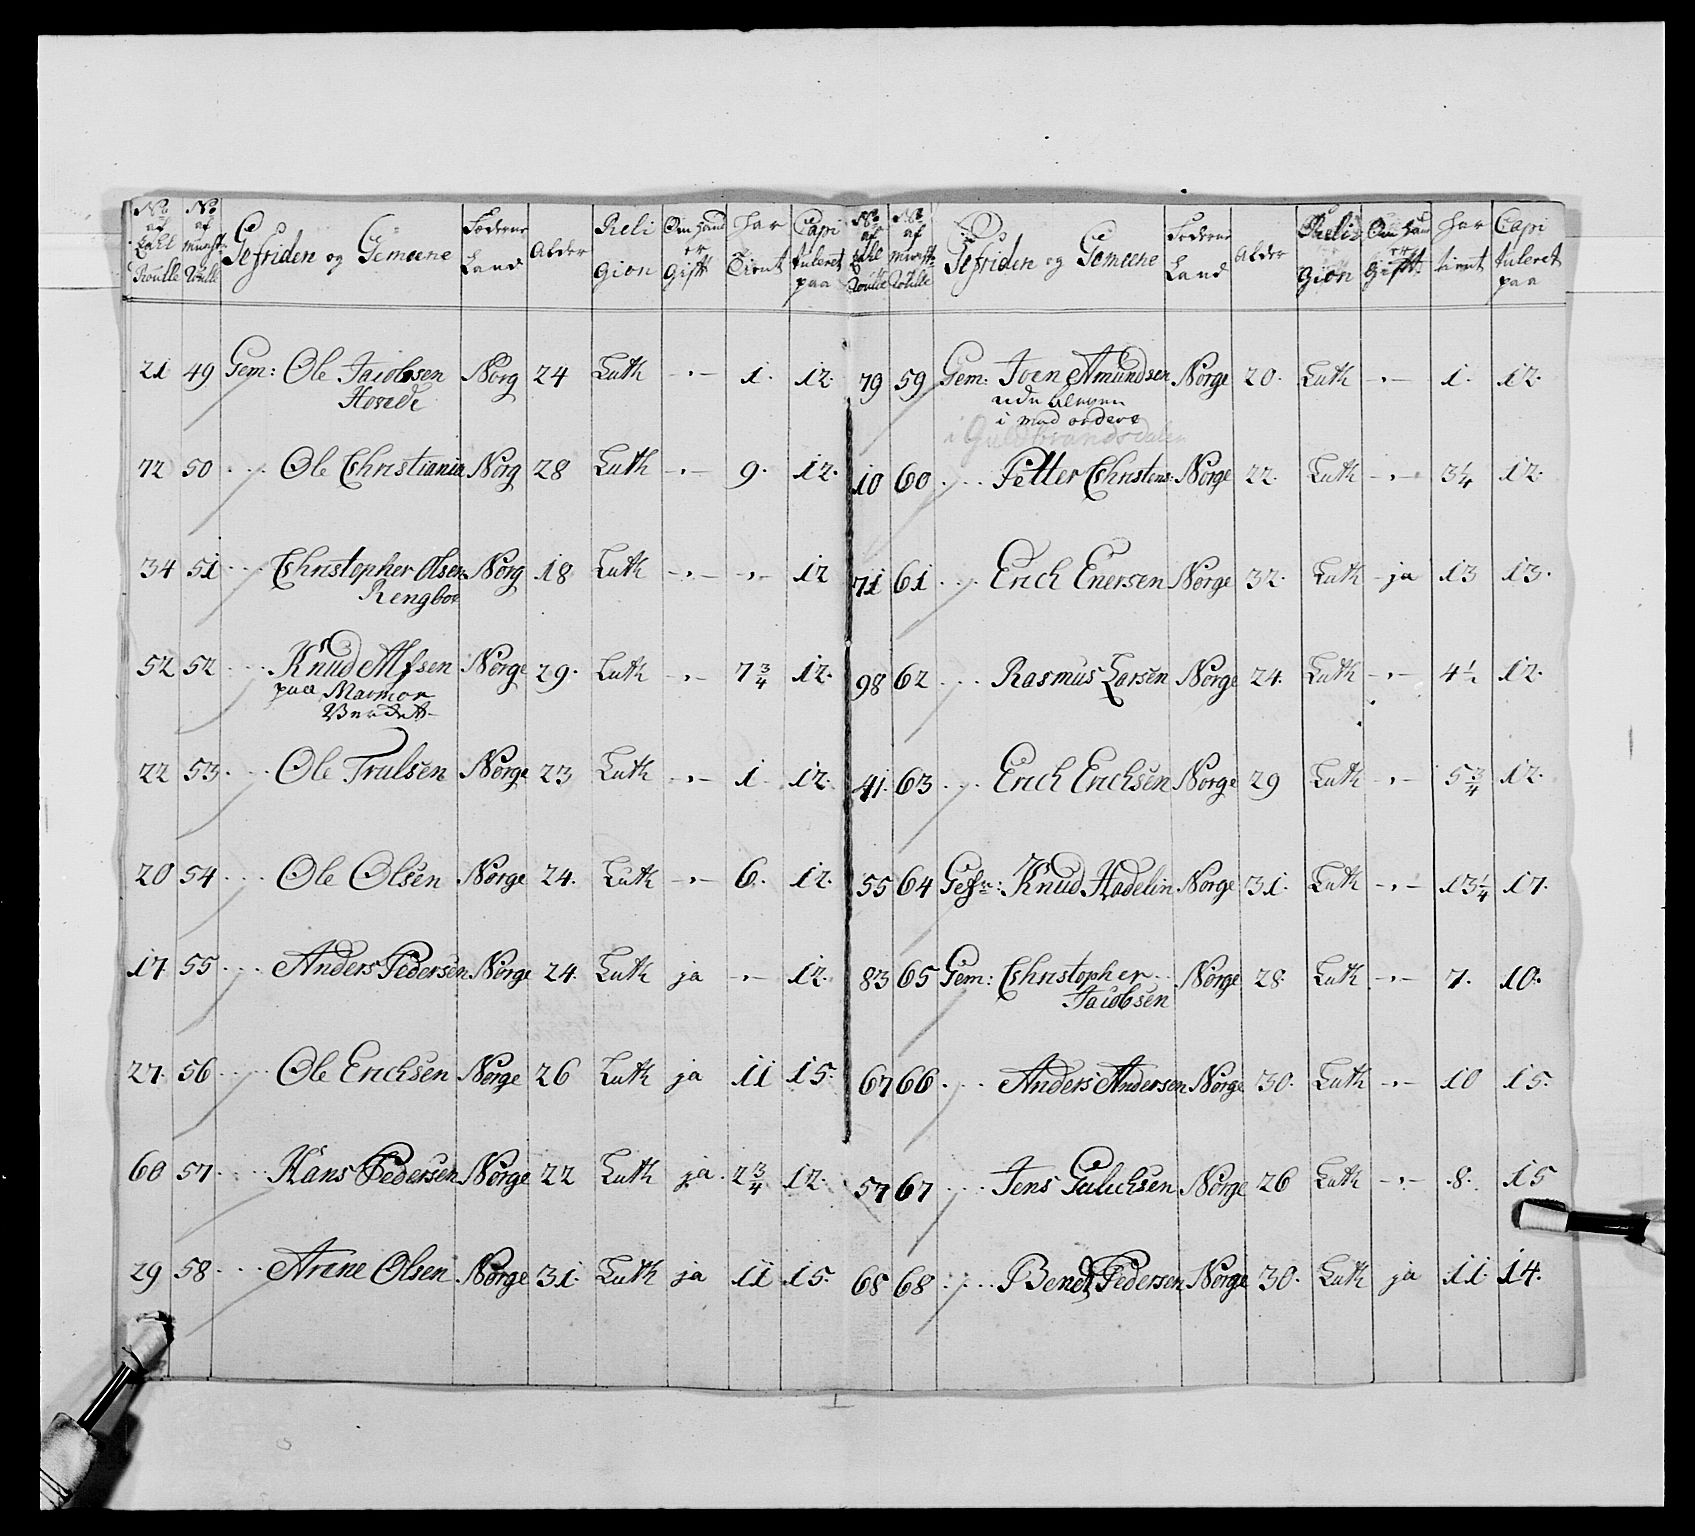 No af Zahl Roulle | No af Munst: Roulle | Gefriden og Gemeene | Fæderne Land | Alder | Religion | Om hand er Gifft | Har Tient | Capituleret paa
21 49 Gem: Ole Jacobsen Norg 24 Luth -"- 1. 12.
Hovede
72 50 " Ole Christiania Norg 28 Luth -"- 9. 12.
34 51 " Christopher Olsen Norg 18 Luth -"- -"- 12
Rengboe
52 52 " Knud Alfsen Norge 29. Luth -"- 7 3/4 12.
paa Marmor
22 53 " Ole Trulsen Norge 23 Luth -"- 1 12.
20 54 " Ole Olsen Norge 24. Luth -"- 6. 12.
17 55 " Anders Pedersen Norge 24. Luth ja -"- 12.
27. 56 " Ole Erichsen Norge 26 Luth ja 11 15.
60 57 " Hans Pedersen Norge 22 Luth ja. 2 3/4 12.
29 58 " Arene Olsen Norge 31. Luth ja 11 15.
No af Zahl Roulle | No af Munst: Roulle | Gefriden og Gemeene | Fæderne Land | Alder | Religion | Om hand er Gifft | Har tient | Capituleret paa
79 59 Gem: Joen Amundsen Norge 20. Luth -"- 1. 12.
udebleven
i mod ordere
i Guldbrandsdalen
10 60 " Petter Christens: Norge 22. Luth -"- 3 1/4 12.
71 61 " Erich Enersen Norge 32. Luth ja 13 13.
98 62 " Rasmus Larsen Norge 24. Luth -"- 4 1/2 12.
41. 63 " Erich Erichsen Norge 29 Luth -"- 5 3/4 12.
55 64 Gefr: Knud Hadelin Norge 31. Luth -"- 13 1/4 17.
83 65 Gem: Christopher Norge 28. Luth -"- 7. 10.
Jacobsen
67 66 " Anders Andersen Norge 30. Luth -"- 10 15.
57 67 " Jens Gulichsen Norge 26 Luth -"- 8. 15
68 68 " Bendt Pedersen Norge 30. Luth ja 11. 14.